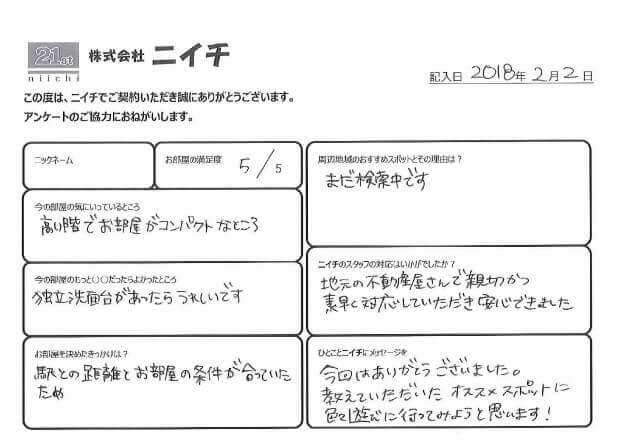 21st
niichi
株式会社 ニイチ
記入日 2018年 2月 2日
この度は、ニイチでご契約いただき誠にありがとうございます。
アンケートのご協力におねがいします。
ニックネーム
お部屋の満足度 5/5
今の部屋の気にいっているところ
高い階でお部屋がコンパクトなところ
今の部屋のもっと○○だったらよかったところ
独立洗面台があったらうれしいです
お部屋を決めたきっかけは?
駅との距離とお部屋の条件が合っていた
ため
周辺地域のおすすめスポットとその理由は?
まだ検索中です
ニイチのスタッフの対応はいかがでしたか?
地元の不動産屋さんで親切かつ
素早く対応していただき安心できました
ひとことニイチにメッセージを
今回はありがとうございました。
教えていただいたオススメスポットに
色々遊びに行ってみようと思います!